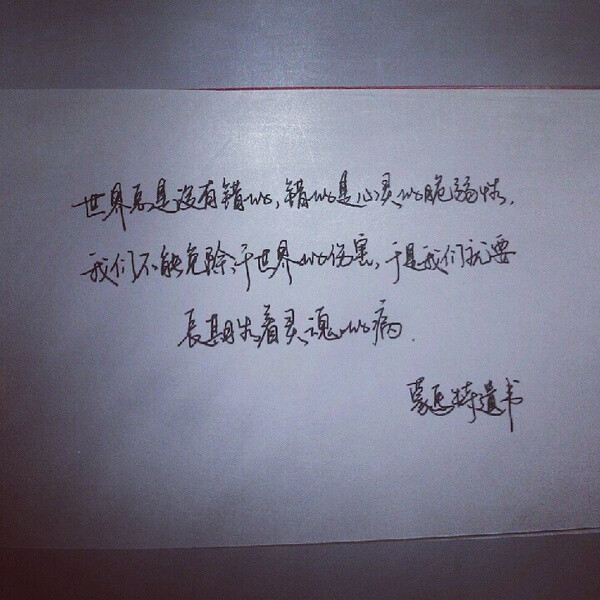 世界总是没有错的,错的是心灵的脆弱性,
我们不能免除于世界的伤害,于是我们就要
长期生着灵魂的病.
蒙马特遗书